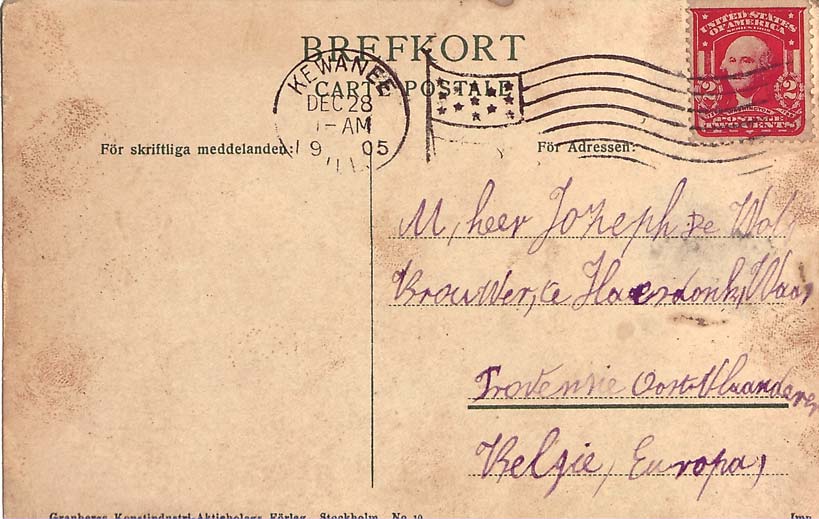 BREFKORT
CARTE POSTALE
KEWANEE
DEC 28
1-AM
1905
ILL.
UNITED STATES
OF AMERICA
SERIES 1902
2 2
POSTAGE
TWO CENTS
För skriftliga meddelanden:
För Adressen:
M, heer Joseph De Wolf
Brouwer, te Haesdonk, Waas
Provensie Oost-Vlaanderen
Belgie, Europa,
Granbergs Konstindustri-Aktiebolags Förlag, Stockholm. No 10
Imp